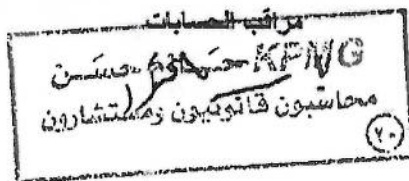 مراقب الحسابات
KPMG حازم حسن
محاسبون قانونيون ومستشارون
(٢٠)